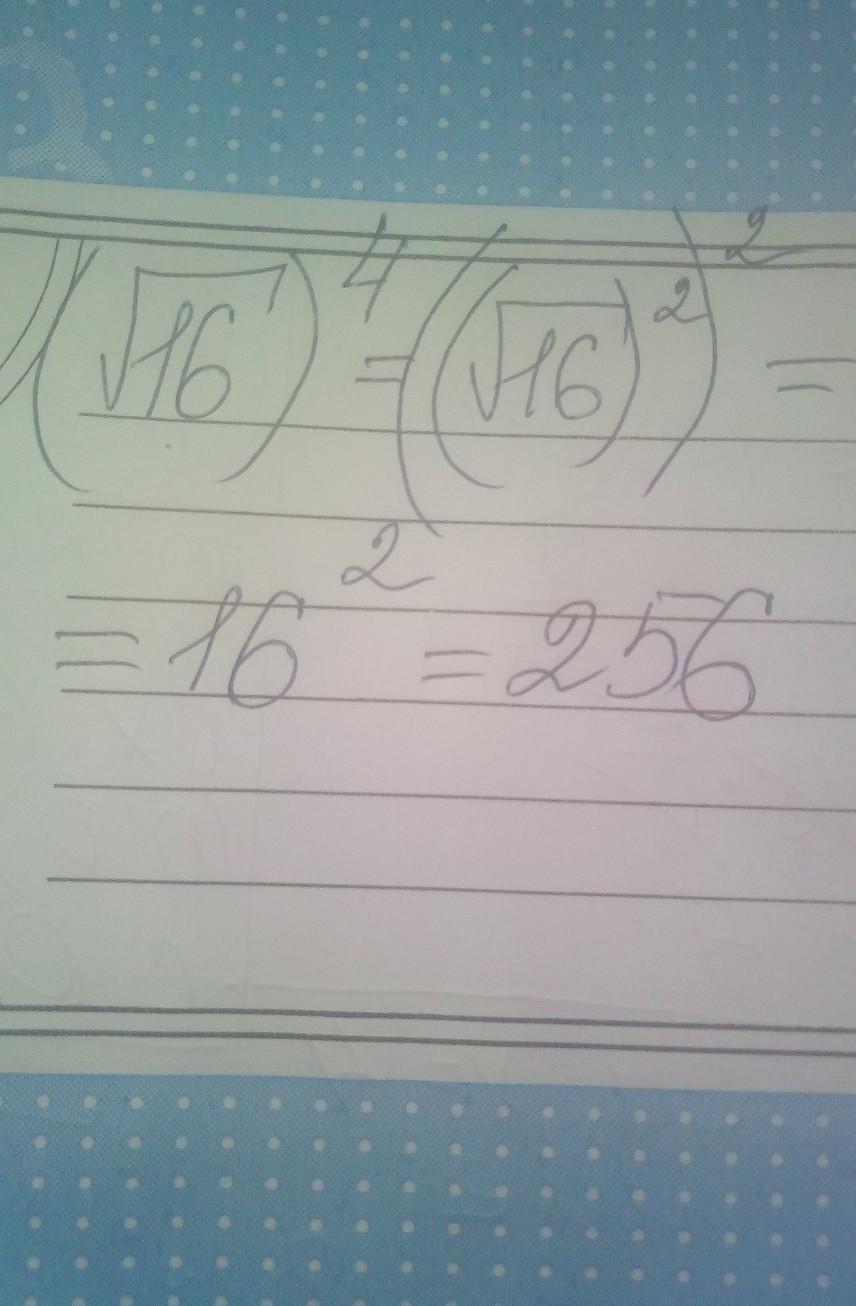 (√16)⁴ = ((√16)²)² =
= 16² = 256